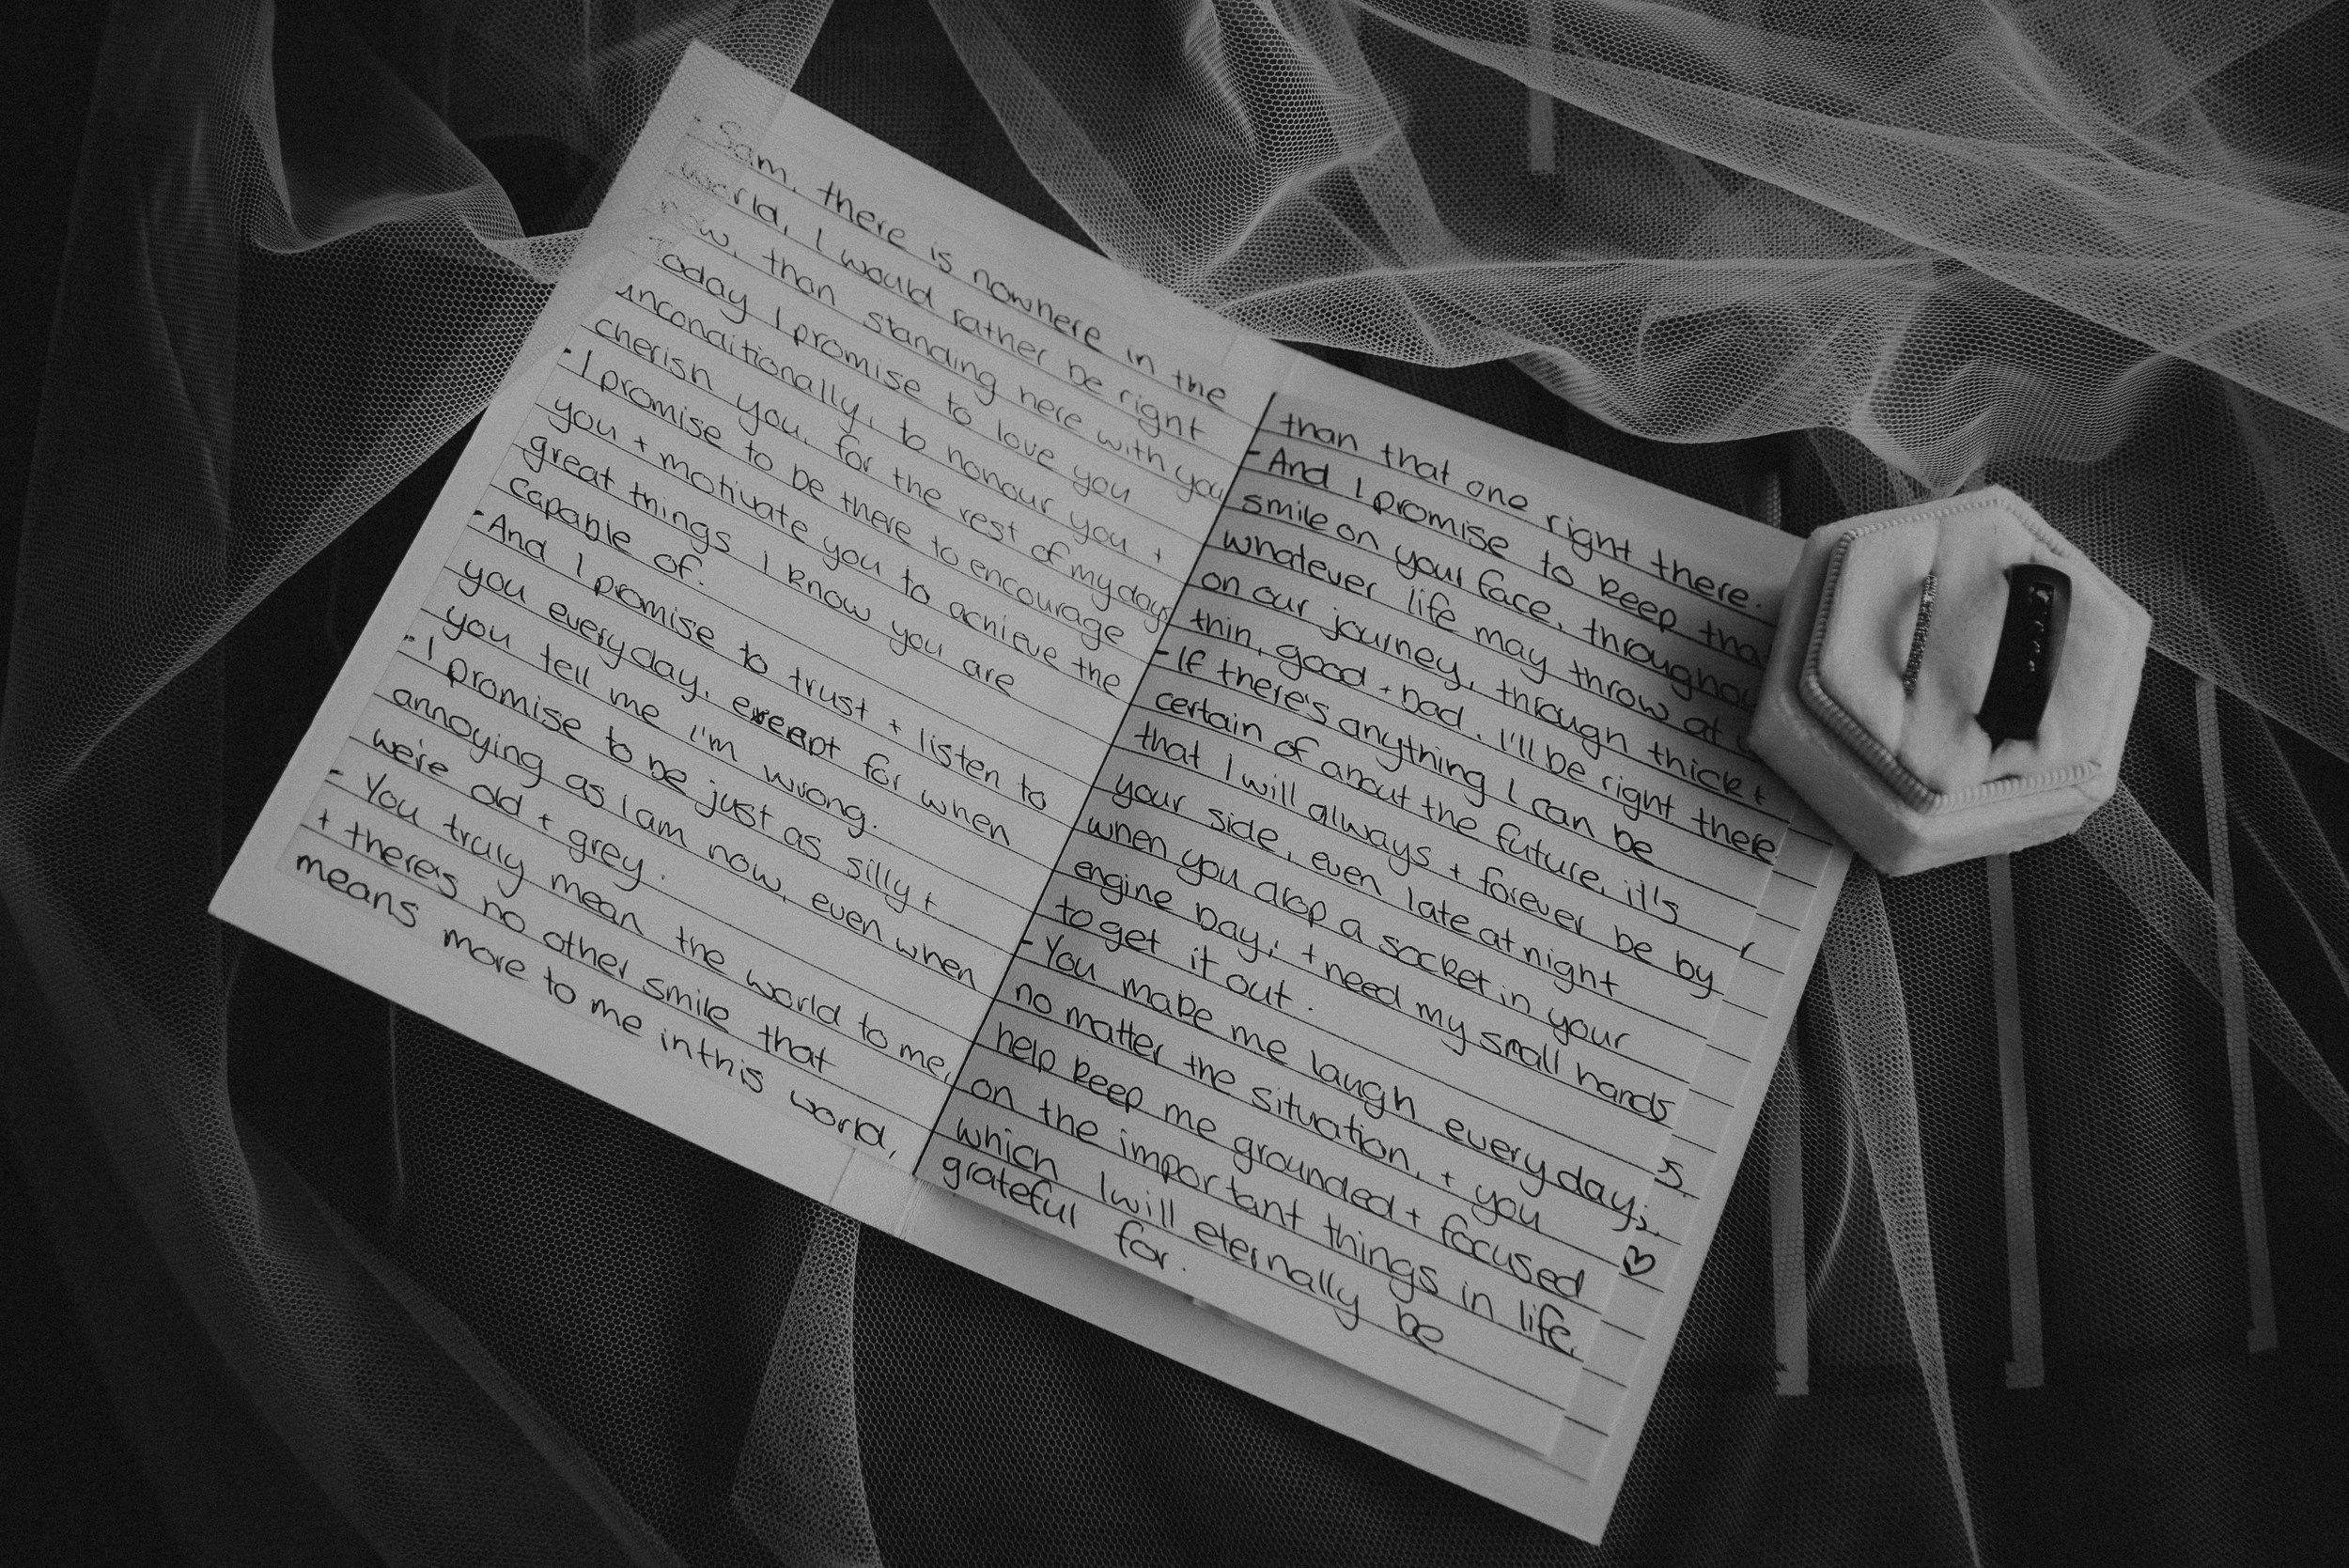 - Sam, there is nowhere in the
world, I would rather be right
now, than standing here with you
Today I promise to love you
unconditionally, to honour you +
cherish you, for the rest of my days
- I promise to be there to encourage
you + motivate you to achieve the
great things I know you are
capable of.
- And I promise to trust + listen to
you everyday, except for when
you tell me I'm wrong.
- I promise to be just as silly +
annoying as I am now, even when
we're old + grey.
- You truly mean the world to me,
+ there's no other smile that
means more to me in this world,
than that one right there.
- And I promise to keep that
smile on your face, throughou
whatever life may throw at
on our journey, through thick +
thin, good + bad. I'll be right there
- If there's anything I can be
certain of about the future, it's
that I will always + forever be by
your side, even late at night
when you drop a socket in your
engine bay, + need my small hands
to get it out.
- You make me laugh everyday,
no matter the situation, + you
help keep me grounded + focused
on the important things in life,
which I will eternally be
grateful for.
♡